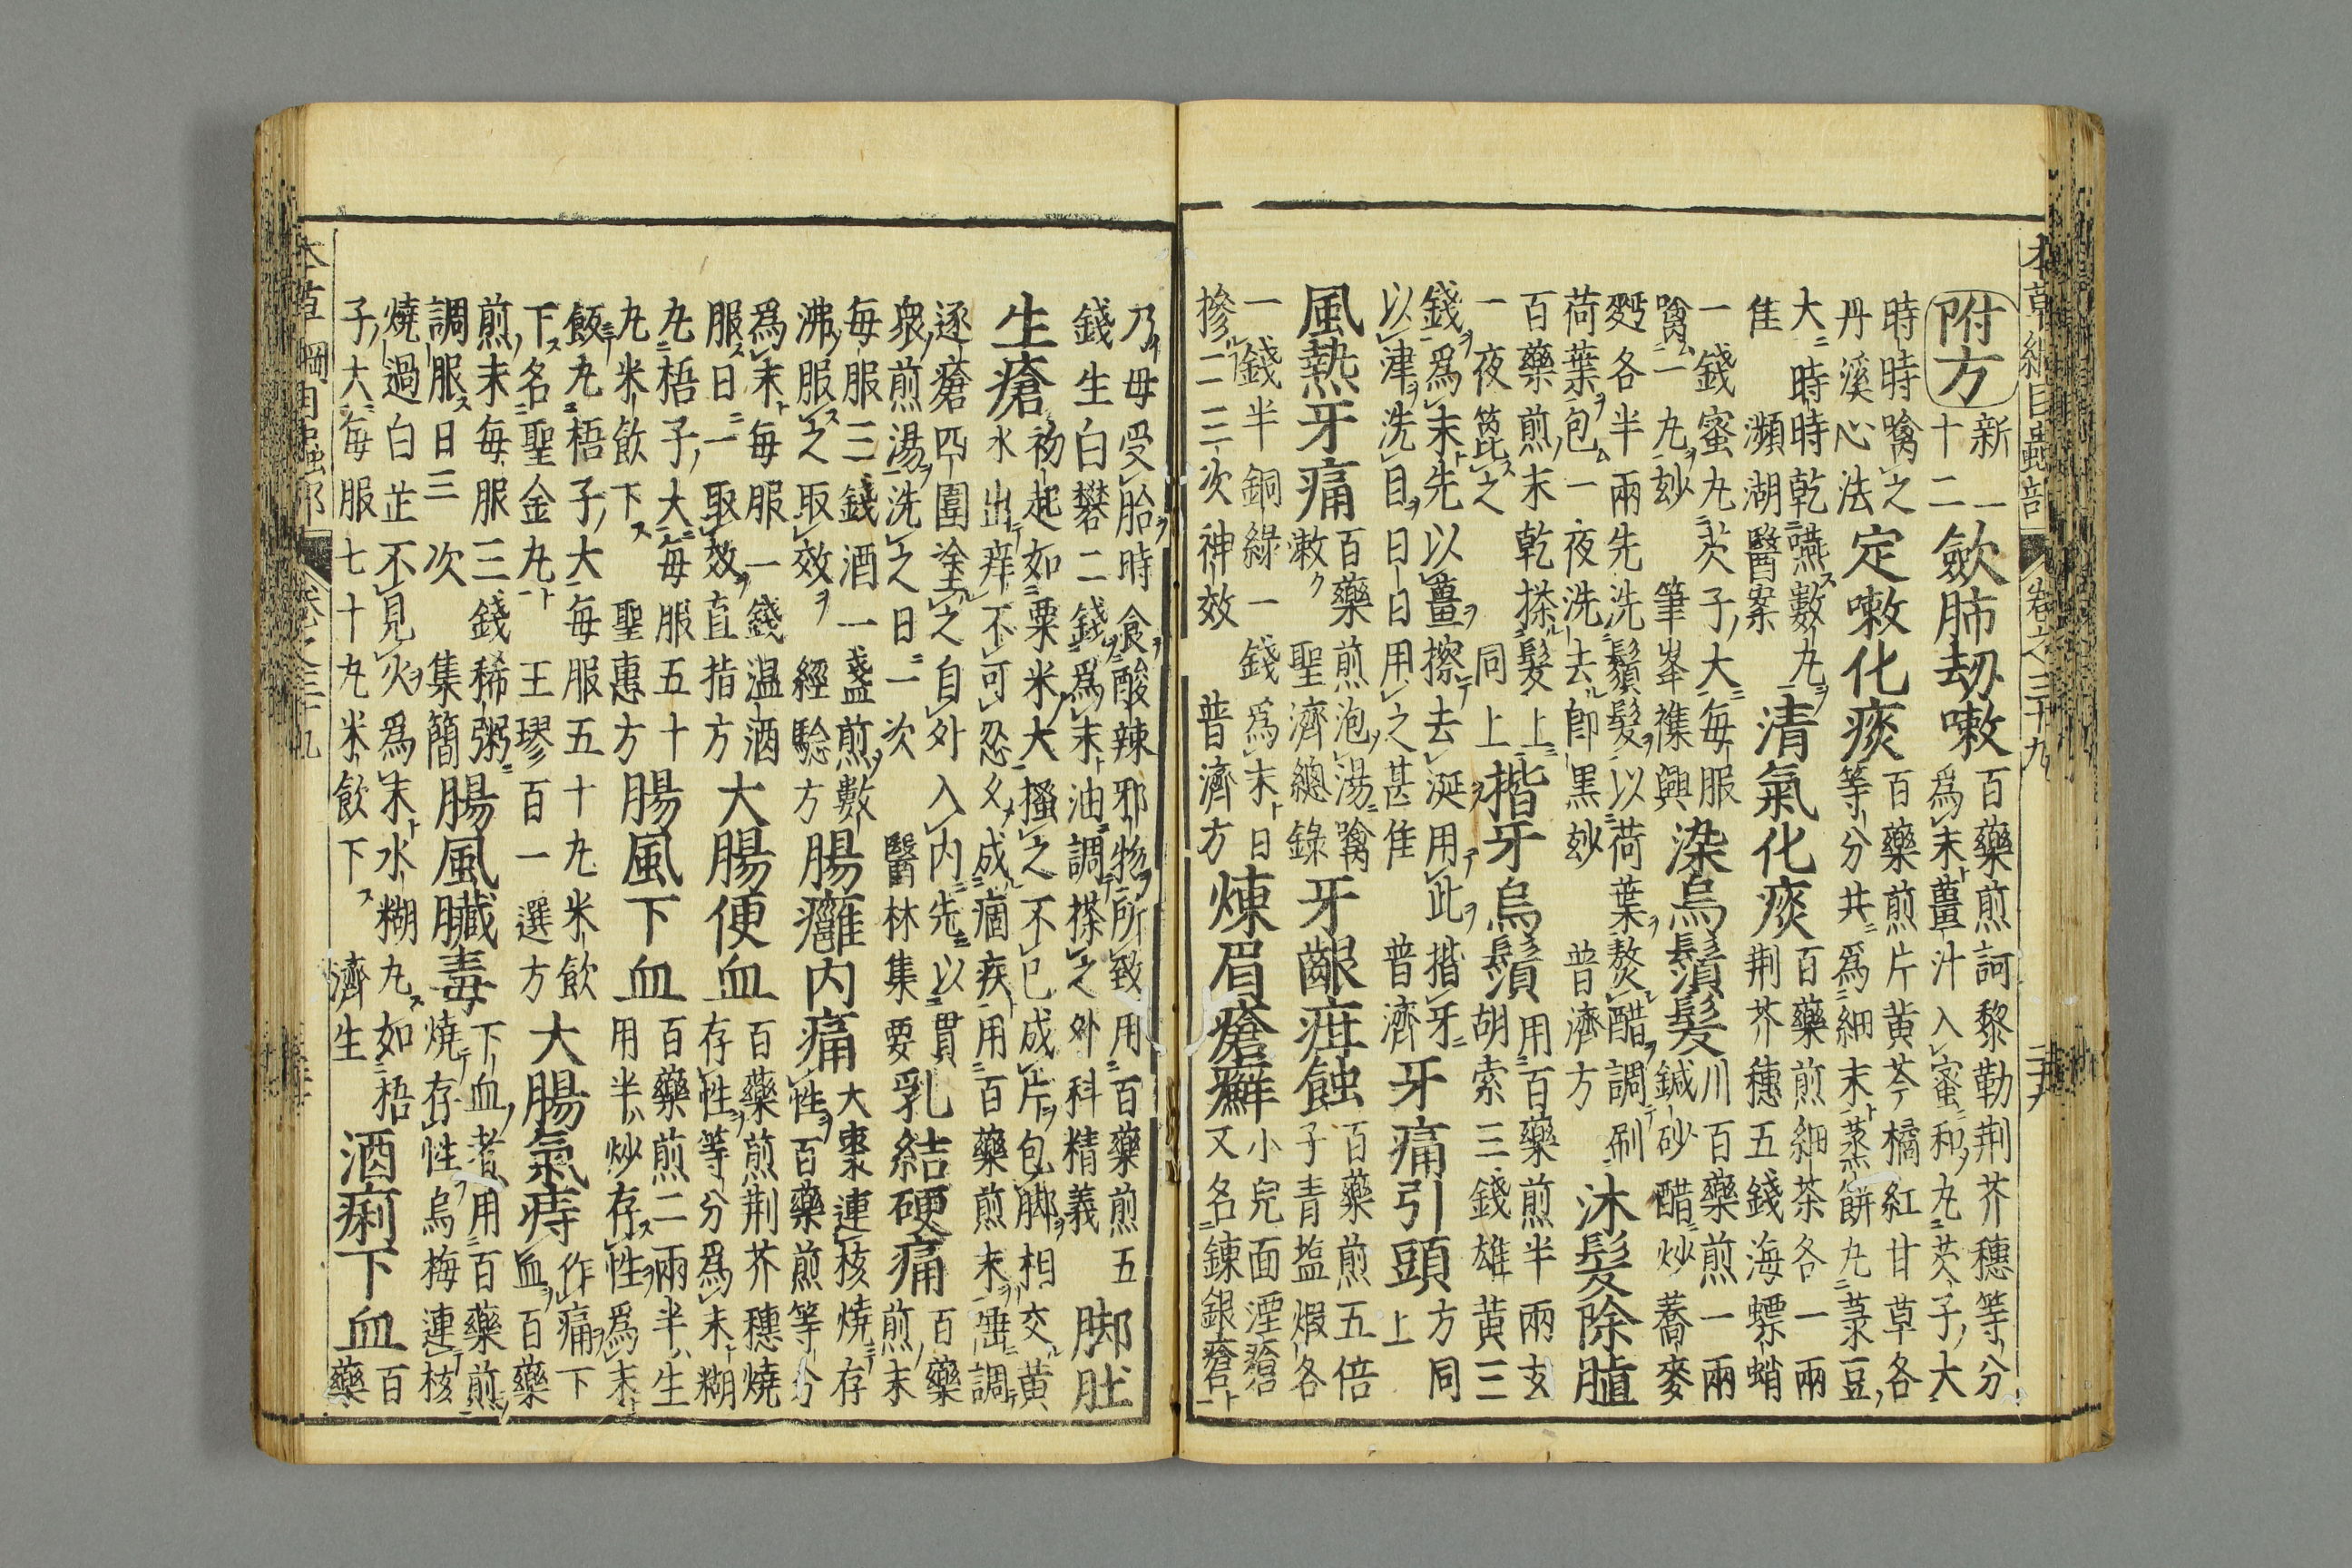 本草綱目蟲部 卷之三十九 二十六
附方 新一十二 斂肺劫嗽 百藥煎訶黎勒荆芥穗等分
爲末薑汁入蜜和丸芡子大
時時噙之
丹溪心法 定嗽化痰 百藥煎片黄芩橘紅甘草各
等分共爲細末蒸餅丸菉豆
大時時乾嚥數丸
佳 瀕湖醫案 清氣化痰 百藥煎細茶各一兩
荆芥穗五錢海螵蛸
一錢蜜丸芡子大每服
噙一丸玅 筆峯襍興 染烏鬚髮 川百藥煎一兩
鍼砂醋炒蕎麥
麪各半兩先洗鬚髮以荷葉熬醋調刷
荷葉包一夜洗去卽黑玅 普濟方 沐髮除䐈
百藥煎末乾搽髮上
一夜篦之 同上 揩牙烏鬚 用百藥煎半兩玄
胡索三錢雄黄三
錢爲末先以薑擦去涎用此揩牙
以津洗目日日用之甚佳 普濟 牙痛引頭 方同
上
風熱牙痛 百藥煎泡湯噙
漱 聖濟總錄 牙齦疳蝕 百藥煎五倍
子青塩煅各
一錢半銅綠一錢爲末日
摻二三次神效 普濟方 煉眉瘡癬 小兒面湮瘡
又名鍊銀瘡
乃母受胎時食酸辣邪物所致用百藥煎五
錢生白礬二錢爲末油調搽之外科精義 脚肚
生瘡 初起如粟米大搔之不已成片包脚相交黄
水出痒不可忍久成痼疾用百藥煎末唾調
逐瘡四圍塗之自外入内先以貫
衆煎湯洗之日一次 醫林集要 乳結硬痛 百藥
煎末
每服三錢酒一盞煎數
沸服之取效 經驗方 腸癰内痛 大棗連核燒存
性百藥煎等分
爲末每服一錢温酒
服日一取效直指方 大腸便血 百藥煎荆芥穗燒
存性等分爲末糊
丸梧子大每服五十
丸米飲下 聖惠方 腸風下血 百藥煎二兩半生
用半炒存性爲末
飯丸梧子大每服五十丸米飲
下名聖金丸 王璆百一選方 大腸氣痔 作痛下
血百藥
煎末每服三錢稀粥
調服日三次 集簡 腸風臟毒 下血者用百藥煎
燒存性烏梅連核
燒過白芷不見火爲末水糊丸如梧
子大每服七十丸米飲下 濟生 酒痢下血 百
藥
本草綱目蟲部 卷之三十九